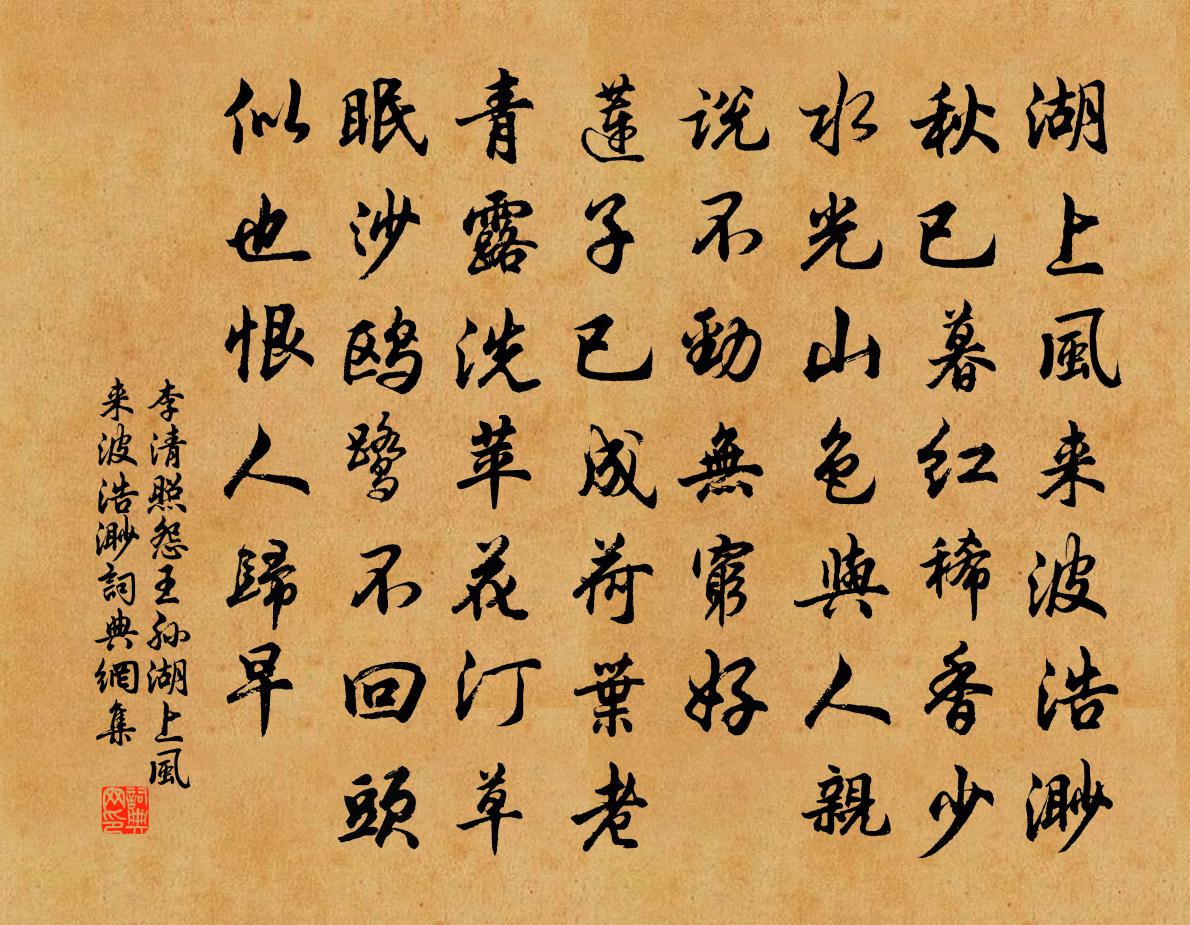 湖上風来波浩渺
秋已暮红稀香少
水光山色與人親
说不勁無窮好
蓮子已成荷葉老
青露洗苹花汀草
眠沙鸥鹭不回頭
似也恨人歸早
李清照怨王孙湖上風
来波浩渺詞典網集
詞典
网印